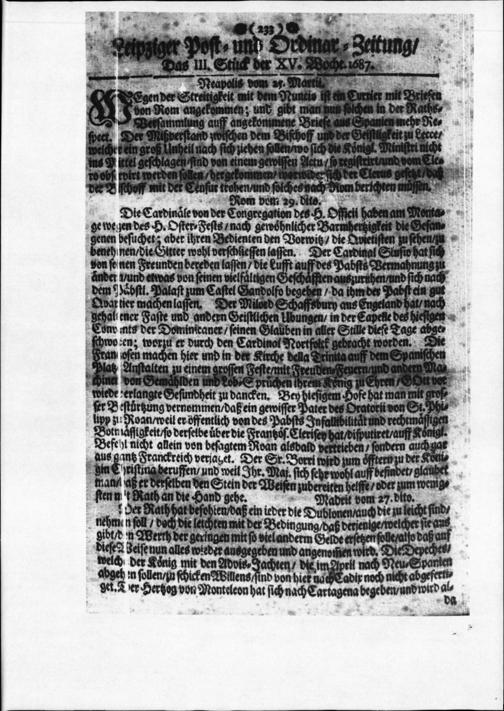 (233)
Leipziger Post- und Ordinar-Zeitung/
Das III. Stück der XV. Woche. 1687.
Neapolis vom 25. Martii.
WEgen der Streitigkeit mit dem Nuncio ist ein Currier mit Briefen
von Rom angekommen; und gibt man nun solchen in der Raths-
Versammlung auff angekommene Briefe aus Spanien mehr Re-
spect. Der Mißverstand zwischen dem Bischoff und der Geistligkeit zu Lecce/
welcher ein groß Unheil nach sich ziehen sollen/wo sich die Königl. Ministri nicht
ins Mittel geschlagen/sind von einem gewissen Actu/so registrirt/und vom Cle-
ro obs wirt werden sollen/hergekommen/worwider sich der Clerus gesetzt/daß
der Bischoff mit der Censur trohen/und solches nach Rom berichten müssen.
Rom vom 29. dito.
Die Cardinäle von der Congregation des H. Officii haben am Monta-
ge wegen des H. Oster-Fests/nach gewöhnlicher Barmhertzigkeit die Gefan-
genen besuchet; aber ihren Bedienten den Vorwitz/die Quietisten zu sehen/zu
benehmen/die Gitter wohl verschliessen lassen. Der Cardinal Slusio hat sich
von seinen Freunden bereden lassen/die Lufft auff des Pabsts Vermahnung zu
ändern/und etwas von seinen vielfältigen Geschäfften auszuruhen/und sich nach
dem Päbstl. Palast zum Castel Gandolfo begeben/da ihm der Pabst ein gut
Quartier machen lassen. Der Milord Schaffsbury aus Engeland hat/nach
gehaltener Faste und andern Geistlichen Ubungen/in der Capelle des hiesigen
Convents der Dominicaner/seinen Glauben in aller Stille diese Tage abge-
schworen; worzu er durch den Cardinal Nortfolk gebracht worden. Die
Frantzosen machen hier und in der Kirche della Trinita auff dem Spanischen
Platz Anstalten zu einem grossen Feste/mit Freuden-Feuern/und andern Ma-
chinen von Gemählden und Lob-Sprüchen ihrem König zu Ehren/GOtt vor
wieder erlangte Gesundheit zu dancken. Bey hiesigem Hofe hat man mit gros-
ser Bestürtzung vernommen/daß ein gewisser Pater des Oratorii von St. Phi-
lipp zu Roan/weil er öffentlich von des Pabsts Infallibilität und rechmässigen
Botmässigkeit/so derselbe über die Frantzös. Clerisey hat/disputiret/auff Königl.
Befehl nicht allein von besagtem Roan alsbald vertrieben/sondern auch gar
aus gantz Franckreich verjaget. Der Sr. Borri wird zum öfftern zu der Köni-
gin Christina beruffen/und weil Ihr. Maj. sich sehr wohl auff befindet/glaubet
man/daß er derselben den Stein der Weisen zubereiten helffe/oder zum wenig-
sten mit Rath an die Hand gehe. Madrit vom 27. dito.
Der Rath hat befohlen/daß ein ieder die Dublonen/auch die zu leicht sind/
nehmen soll/doch die leichten mit der Bedingung/daß derjenige/welcher sie aus
gibt/den Werth der geringen mit so viel anderm Gelde ersetzen solle/also daß auf
diese Weise nun alles wieder ausgegeben und angenommen wird. Die Depeches/
welche der König mit den Advis-Jachten/die im April nach Neu-Spanien
abgehen sollen/zu schicken Willens/sind von hier nach Cadix noch nicht abgeferti-
get. Der Hertzog von Monteleon hat sich nach Cartagena begeben/und wird al-
da